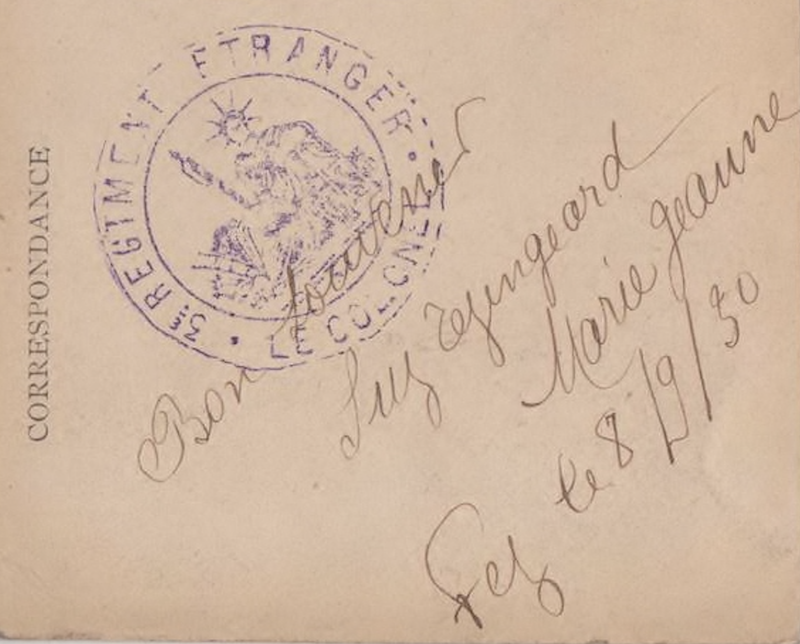 CORRESPONDANCE
3E REGIMENT ETRANGER
LE COLONEL
Bon Souvenir
Marie Jeanne
Fez le 8/9/30